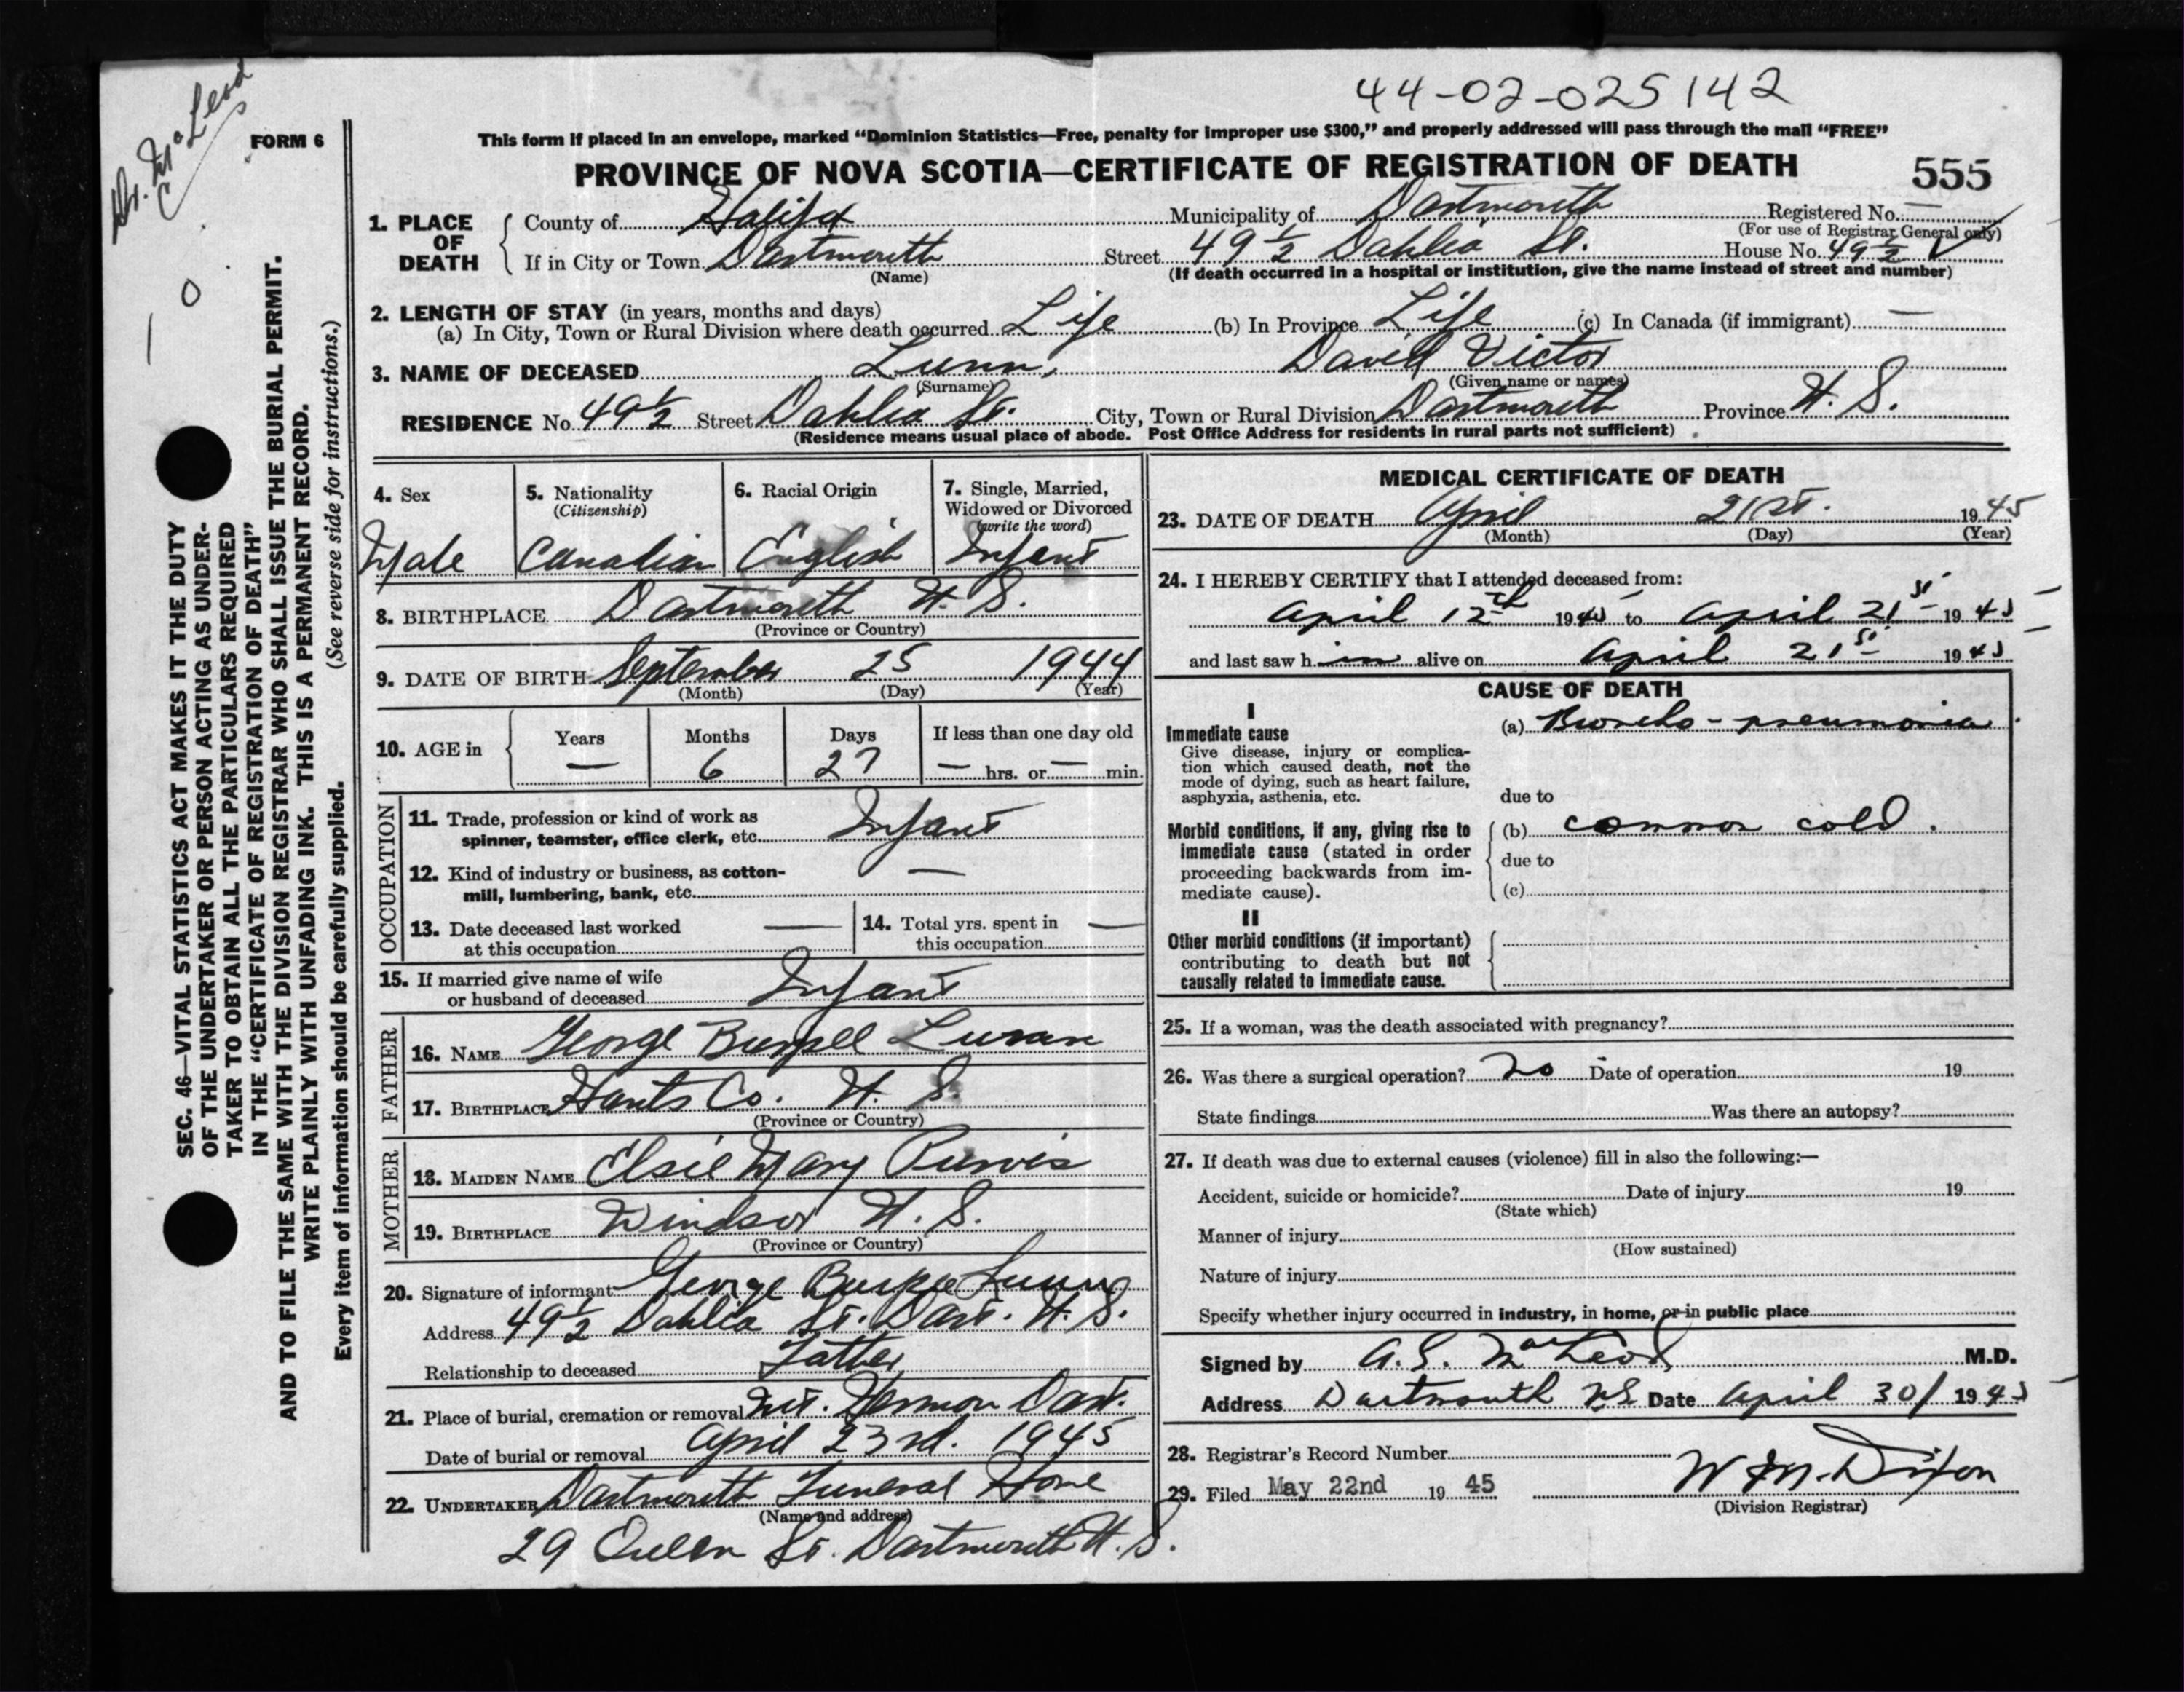 44-02-025142
Dr. McLeod
FORM 6
This form if placed in an envelope, marked “Dominion Statistics—Free, penalty for improper use $300,” and properly addressed will pass through the mail “FREE”
PROVINCE OF NOVA SCOTIA—CERTIFICATE OF REGISTRATION OF DEATH 555
1. PLACE OF DEATH County of Halifax Municipality of Dartmouth Registered No. —
(For use of Registrar General only)
If in City or Town Dartmouth Street 49½ Dahlia St. House No. 49½
(Name) (If death occurred in a hospital or institution, give the name instead of street and number)
2. LENGTH OF STAY (in years, months and days)
(a) In City, Town or Rural Division where death occurred Life (b) In Province Life (c) In Canada (if immigrant) —
3. NAME OF DECEASED Lunn, David Victor
(Surname) (Given name or names)
RESIDENCE No. 49½ Street Dahlia St. City, Town or Rural Division Dartmouth Province N. S.
(Residence means usual place of abode. Post Office Address for residents in rural parts not sufficient)
4. Sex Male
5. Nationality (Citizenship) Canadian
6. Racial Origin English
7. Single, Married, Widowed or Divorced (write the word) Infant
8. BIRTHPLACE Dartmouth N. S.
(Province or Country)
9. DATE OF BIRTH September 25 1944
(Month) (Day) (Year)
10. AGE in Years — Months 6 Days 27 If less than one day old — hrs. or — min.
OCCUPATION
11. Trade, profession or kind of work as
spinner, teamster, office clerk, etc. Infant
12. Kind of industry or business, as cotton-
mill, lumbering, bank, etc. —
13. Date deceased last worked
at this occupation —
14. Total yrs. spent in
this occupation —
15. If married give name of wife
or husband of deceased Infant
FATHER
16. NAME George Burpee Lunn
17. BIRTHPLACE Hants Co. N. S.
(Province or Country)
MOTHER
18. MAIDEN NAME Elsie Mary Purvis
19. BIRTHPLACE Windsor N. S.
(Province or Country)
20. Signature of informant George Burpee Lunn
Address 49½ Dahlia St. Dart. N. S.
Relationship to deceased Father
21. Place of burial, cremation or removal Mt. Hermon Dart.
Date of burial or removal April 23rd. 1945
22. UNDERTAKER Dartmouth Funeral Home
(Name and address)
29 Queen St. Dartmouth N. S.
MEDICAL CERTIFICATE OF DEATH
23. DATE OF DEATH April 21st. 1945
(Month) (Day) (Year)
24. I HEREBY CERTIFY that I attended deceased from:
April 12th 1945 to April 21st 1945
and last saw h im alive on April 21st 1945
CAUSE OF DEATH
I
Immediate cause
Give disease, injury or complica-
tion which caused death, not the
mode of dying, such as heart failure,
asphyxia, asthenia, etc.
(a) Broncho-pneumonia
due to
Morbid conditions, if any, giving rise to
immediate cause (stated in order
proceeding backwards from im-
mediate cause).
(b) common cold.
due to
(c)
II
Other morbid conditions (if important)
contributing to death but not
causally related to immediate cause.
25. If a woman, was the death associated with pregnancy?
26. Was there a surgical operation? no Date of operation 19
State findings Was there an autopsy?
27. If death was due to external causes (violence) fill in also the following:—
Accident, suicide or homicide? Date of injury 19
(State which)
Manner of injury
(How sustained)
Nature of injury
Specify whether injury occurred in industry, in home, or in public place
Signed by A. S. MacLeod M.D.
Address Dartmouth NS Date April 30/ 1945
28. Registrar's Record Number
29. Filed May 22nd 19 45 W M. Dixon
(Division Registrar)
SEC. 46—VITAL STATISTICS ACT MAKES IT THE DUTY
OF THE UNDERTAKER OR PERSON ACTING AS UNDER-
TAKER TO OBTAIN ALL THE PARTICULARS REQUIRED
IN THE “CERTIFICATE OF REGISTRATION OF DEATH”
AND TO FILE THE SAME WITH THE DIVISION REGISTRAR WHO SHALL ISSUE THE BURIAL PERMIT.
WRITE PLAINLY WITH UNFADING INK. THIS IS A PERMANENT RECORD.
Every item of information should be carefully supplied. (See reverse side for instructions.)